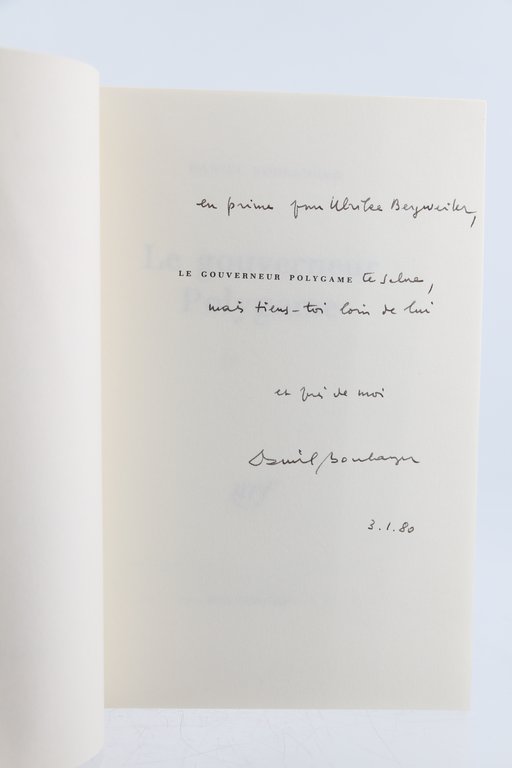 en prime pour Ulrike Bergweiler,
LE GOUVERNEUR POLYGAME te salue,
mais tiens-toi loin de lui
et près de moi
Daniel Boulanger
3.1.80
Le gouverneur
Polygame